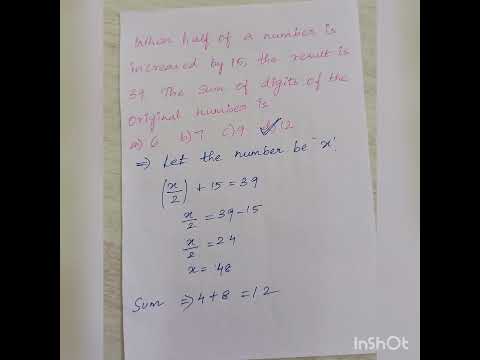 When half of a number is
increased by 15, the result is
39. The sum of digits of the
original number is
a) 6 b) 7 c) 9 d) 12
⇒ Let the number be 'x'.
(x/2) + 15 = 39
x/2 = 39 - 15
x/2 = 24
x = 48
Sum ⇒ 4 + 8 = 12
InShOt